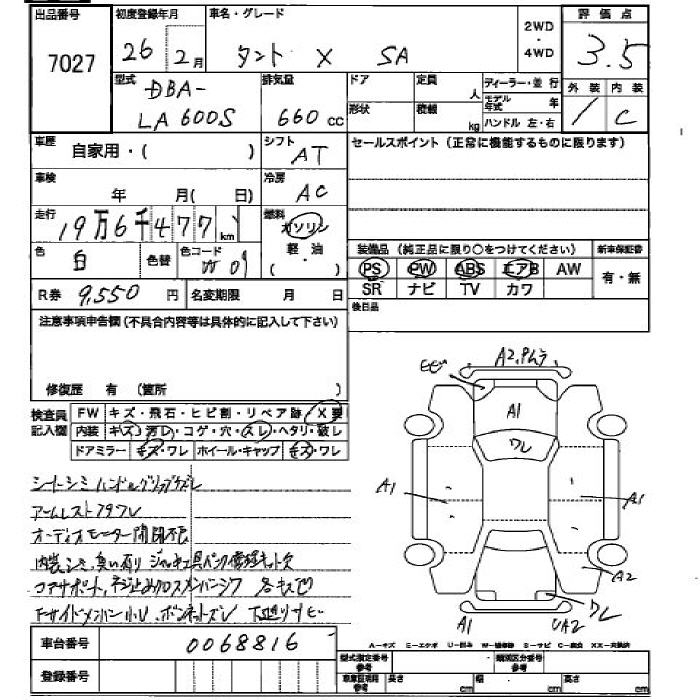 出品番号 初度登録年月 車名・グレード 2WD・4WD 評価点
7027 26 2月 タント X SA 3.5
型式 排気量 ドア 定員 人 ディーラー・並行 外装 内装
DBA-
LA600S 660 cc 形状 積載 kg モデル年式 年 ハンドル 左・右 / C
車歴 自家用・( ) シフト AT セールスポイント(正常に機能するものに限ります)
車検 年 月( 日) 冷房 AC
走行 19万6千477km 燃料 ガソリン 軽・油 ・( )
色 白 色替 色コード W09
装備品(純正品に限り○をつけてください) 新車保証書
PS PW ABS エアB AW 有・無
SR ナビ TV カワ
R券 9,550円 名変期限 月 日 後日品
注意事項申告欄(不具合内容等は具体的に記入して下さい)
修復歴 有(箇所 )
検査員記入欄 FW キズ・飛石・ヒビ割・リペア跡・X要
内装 キズ・汚レ・コゲ・穴・スレ・ヘタリ・破レ
ドアミラー キズ・ワレ ホイール・キャップ キズ・ワレ
シートシミ ハンドルグリップスレ
アームレストフタワレ
オーディオモーター開閉不良
コアサポート、
車台番号 0068816
登録番号
A1
ワレ
A1
A1
A2
ワレ
A1
A-キズ E-エクボ U-凹み W-補修跡 S-サビ C-腐食 XX-交換済
型式指定番号 参考 類別区分番号 参考
車庫証明用 参考 長さ cm 幅 cm 高さ cm